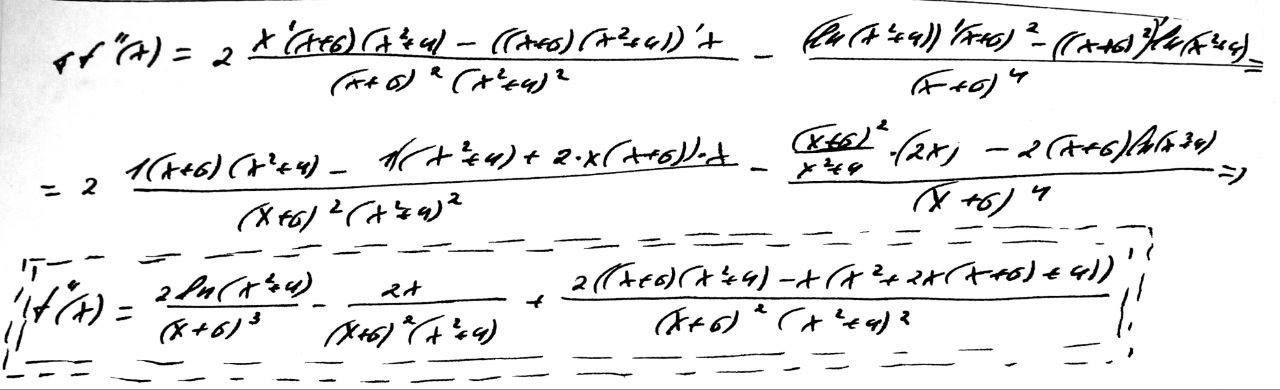 f''(x) = 2 (x'(x+6)(x²+4) - ((x+6)(x²+4))'x)/((x+6)²(x²+4)²) - ((ln(x²+4))'(x+6)² - ((x+6)²)'ln(x²+4))/((x+6)⁴) =
= 2 (1(x+6)(x²+4) - 1((x²+4) + 2·x(x+6))·x)/((x+6)²(x²+4)²) - ((x+6)²/(x²+4)·(2x) - 2(x+6)ln(x²+4))/((x+6)⁴) =>
f''(x) = 2ln(x²+4)/(x+6)³ - 2x/((x+6)²(x²+4)) + 2((x+6)(x²+4) - x(x²+2x(x+6)+4))/((x+6)²(x²+4)²)